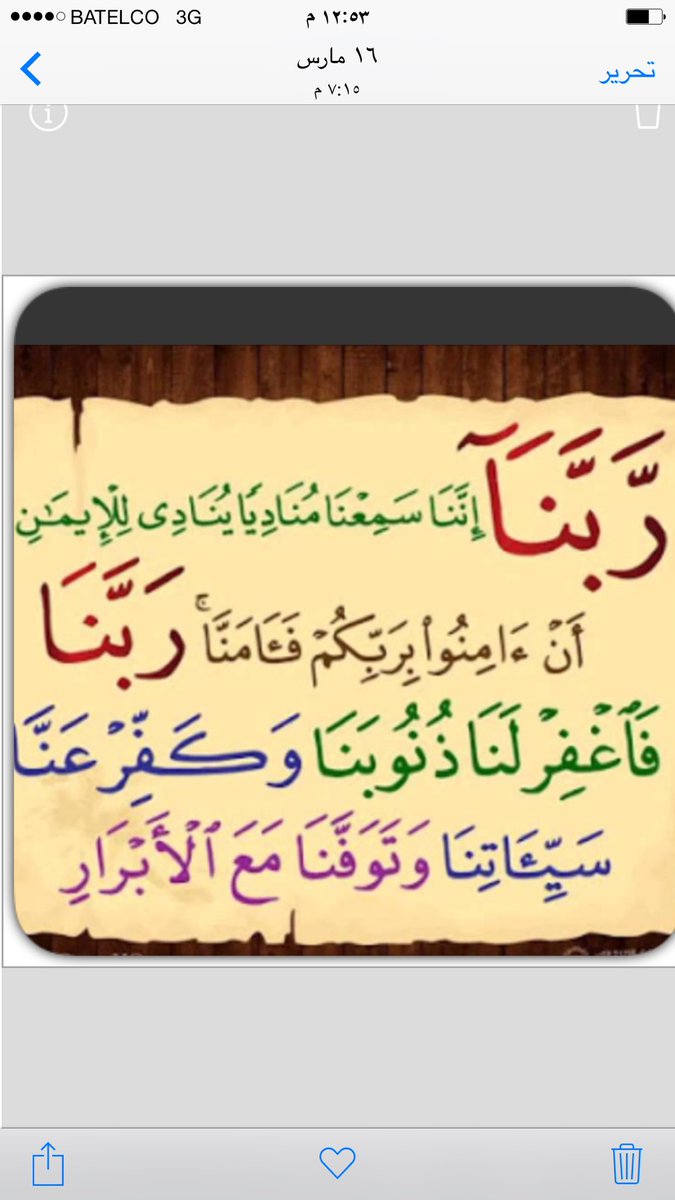 BATELCO 3G ١٢:٥٣ م
١٦ مارس
تحرير
٧:١٥ م
رَّبَّنَآ إِنَّنَا سَمِعْنَا مُنَادِيًا يُنَادِى لِلْإِيمَٰنِ
أَنْ ءَامِنُوا۟ بِرَبِّكُمْ فَـَٔامَنَّا ۚ رَبَّنَا
فَٱغْفِرْ لَنَا ذُنُوبَنَا وَكَفِّرْ عَنَّا
سَيِّـَٔاتِنَا وَتَوَفَّنَا مَعَ ٱلْأَبْرَارِ